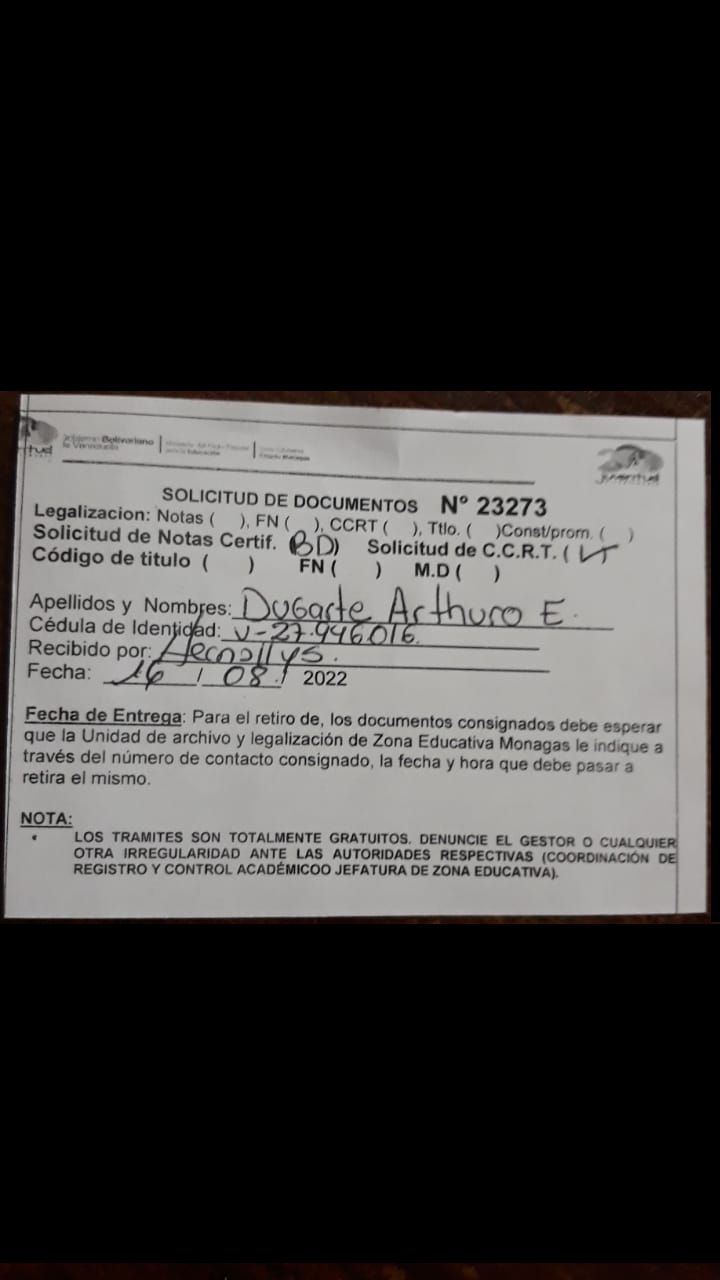 Gobierno Bolivariano
de Venezuela
Juventud
SOLICITUD DE DOCUMENTOS N° 23273
Legalizacion: Notas ( ), FN ( ), CCRT ( ), Ttlo. ( )Const/prom. ( )
Solicitud de Notas Certif. (BD) Solicitud de C.C.R.T. (
Código de titulo ( ) FN ( ) M.D ( )
Apellidos y Nombres: Dugarte Arthuro E.
Cédula de Identidad: V-27.946016.
Recibido por:
Fecha: 16 / 08 / 2022
Fecha de Entrega: Para el retiro de, los documentos consignados debe esperar
que la Unidad de archivo y legalización de Zona Educativa Monagas le indique a
través del número de contacto consignado, la fecha y hora que debe pasar a
retira el mismo.
NOTA:
• LOS TRAMITES SON TOTALMENTE GRATUITOS. DENUNCIE EL GESTOR O CUALQUIER
OTRA IRREGULARIDAD ANTE LAS AUTORIDADES RESPECTIVAS (COORDINACIÓN DE
REGISTRO Y CONTROL ACADÉMICOO JEFATURA DE ZONA EDUCATIVA).